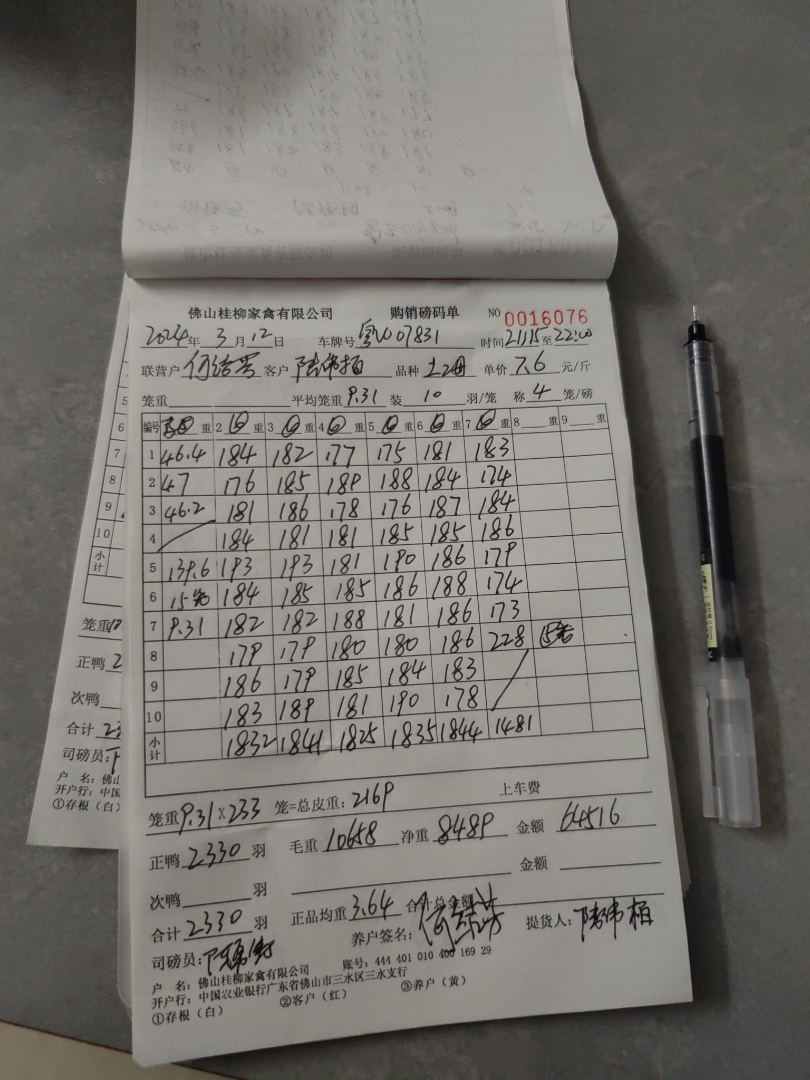 佛山桂柳家禽有限公司 购销磅码单 NO 0016076
2024年 3月 12日 车牌号 粤W07831 时间 21:15 至 22:00
联营户 客户 陆伟柏 品种 土2母 单价 7.6 元/斤
笼重 平均笼重 9.31 装 10 羽/笼 称 4 笼/磅
编号 重 2 重 3 重 4 重 5 重 6 重 7 重 8 重 9 重
1 46.4 184 182 177 175 181 183
2 47 176 185 189 188 184 174
3 46.2 181 186 178 176 187 184
4 184 181 181 185 185 186
5 139.6 193 193 181 190 186 179
6 15笼 184 185 185 186 188 174
7 9.31 182 182 188 181 186 173
8 179 179 180 180 186 228 5笼
9 186 179 185 184 183
10 183 189 181 190 178
小计 1832 1841 1825 1835 1844 1481
笼重 9.31×233 笼=总皮重: 2169 上车费
正鸭 2330 羽 毛重 10658 净重 8489 金额 64516
次鸭 羽 金额
合计 2330 羽 正品均重 3.64 合计总金额
司磅员: 养户签名: 提货人: 陆伟柏
户 名: 佛山桂柳家禽有限公司 账号: 444 401 010 400 169 29
开户行: 中国农业银行广东省佛山市三水区三水支行
①存根（白） ②客户（红） ③养户（黄）